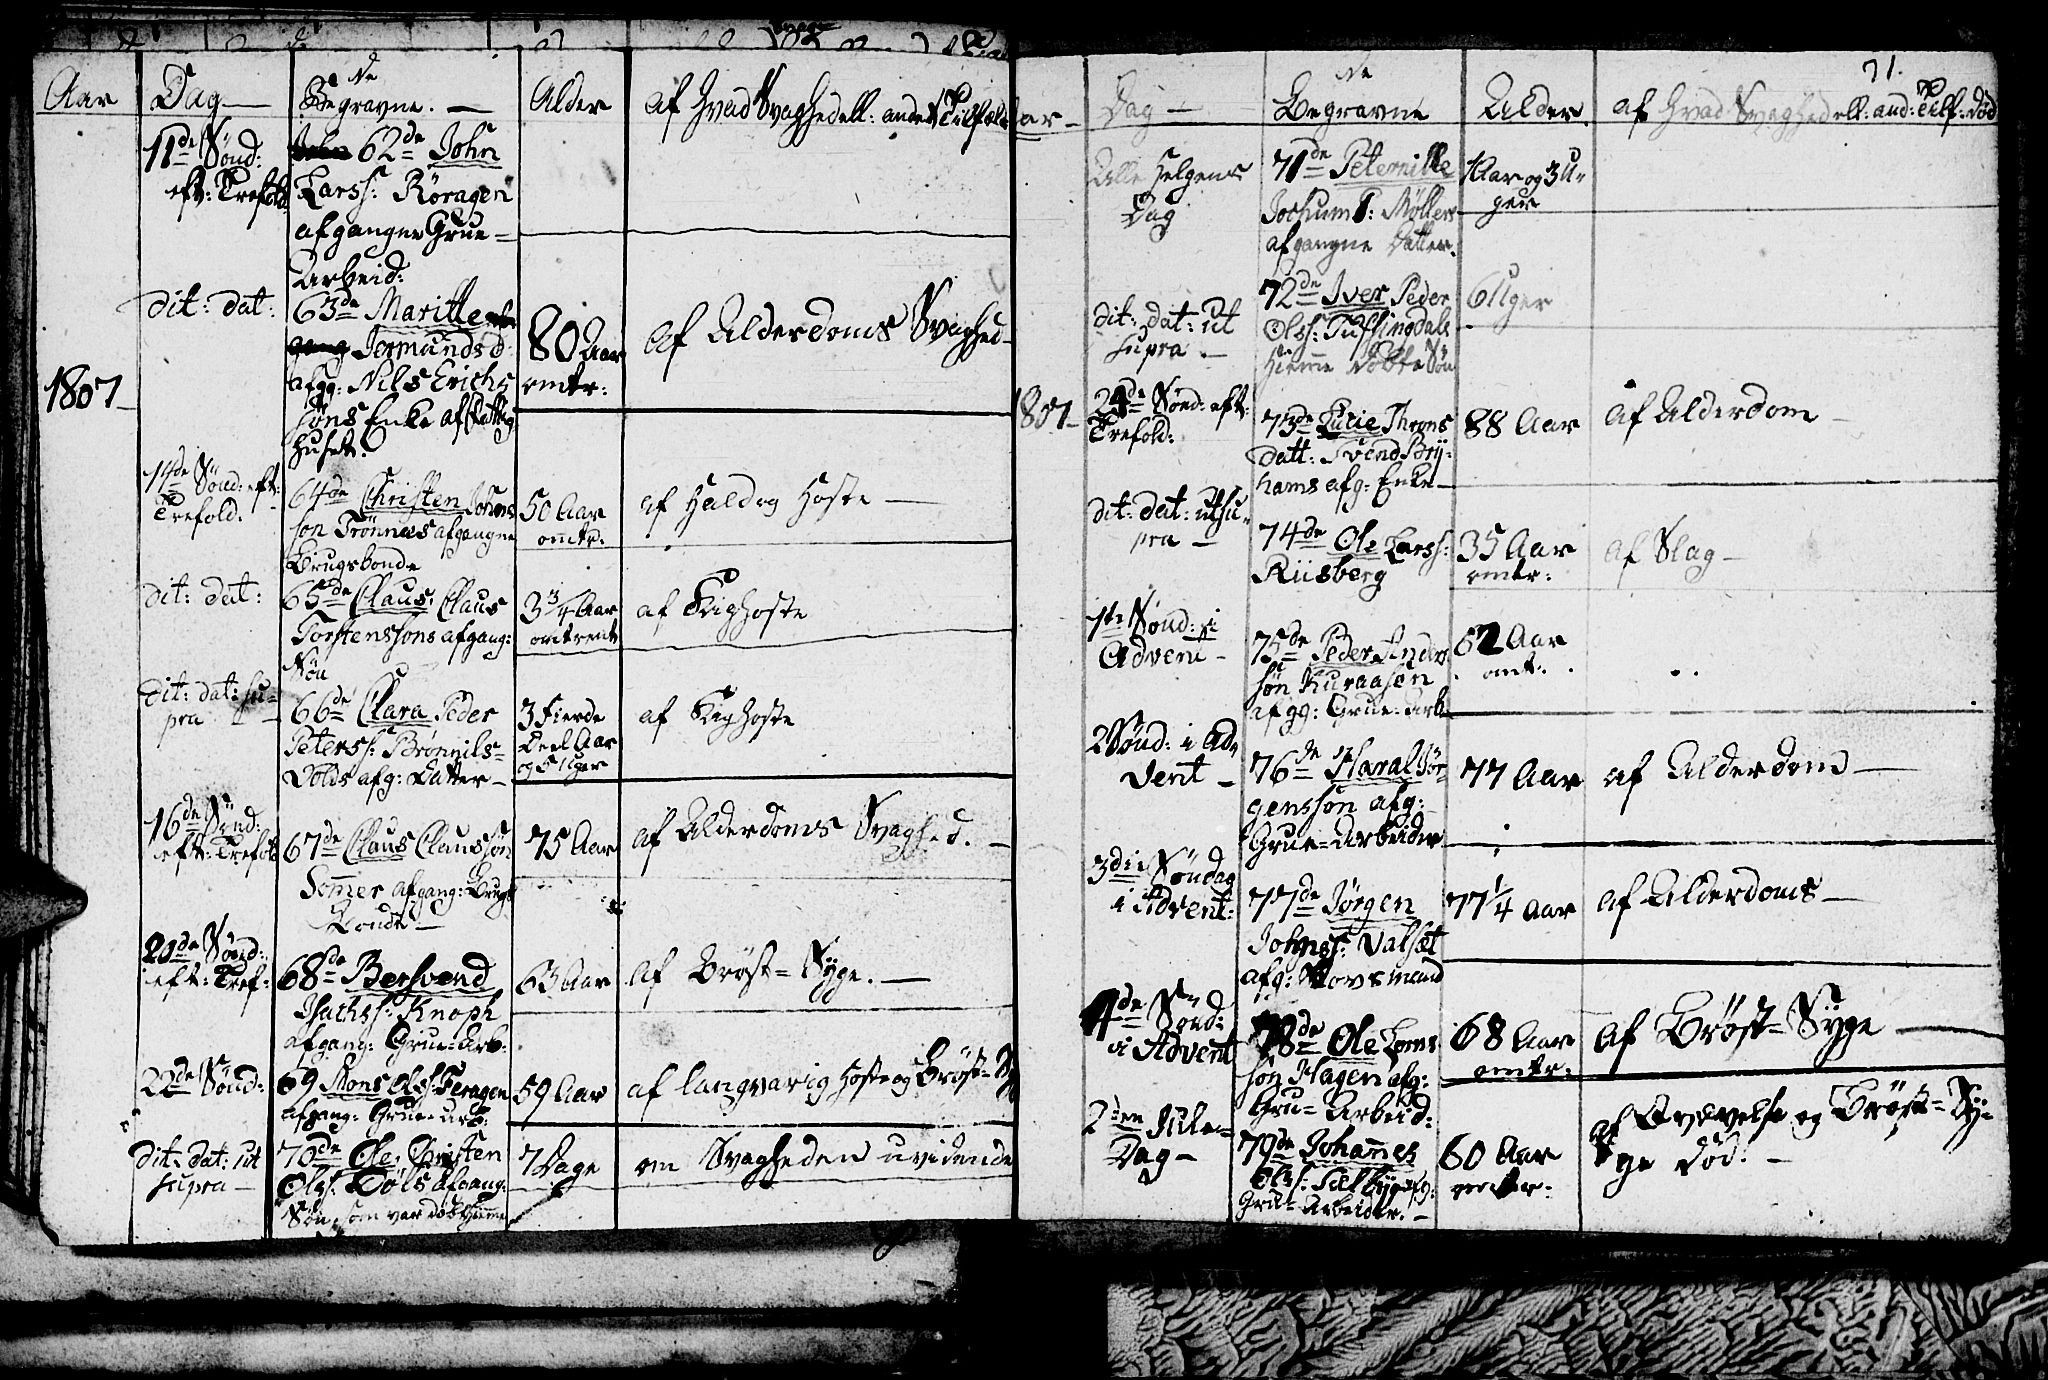 Aar
Dag
No
Begravne.
Alder
af Hvad Svaghed ell: andet Tilfælde
11de Sønd:
eft: Trefold:
62de John
Larss: Røragen
afgangne Grue-
Arbeid:
dit: dat:
63de Maritte
Jormundsd:
afgg: Nils Erichs
søns Enke af Fattig
Huset.
80 Aar
omtr:
af Alderdoms Svaghed
1807
14de Sønd: eft:
Trefold:
64de Christen Johns
søn Trønnæs afgangne
Brugsbonde
50 Aar
omtr:
af Hald og Hoste
dit: dat:
65de Claus Claus
Torstenssøns afgang:
Søn
3 3/4 Aar
omtrent
af Kighoste
dit: dat: su-
pra
66de Clara Peder
Peterss: Brønnils-
Volds afg: Datter
3 Fierde
Deel Aar
og 5 Uger
af Kighoste
16de Sønd:
eft: Trefold
67de Claus Claussøn
Sommer afgang: Brugs
Bonde
75 Aar
af Alderdoms Svaghed.
21de Sønd:
eft: Tref:
68de Bersvend
Isachss: Knoph
afgang: Grue-Arb:
63 Aar
af Bröst-Syge.
22de Sønd:
69 Mons Olss: Feragen
afgang: Grue-Arb:
59 Aar
af langvarig Hoste og Bröst-Sy
dit: dat: ut
supra
70de Ole Christen
Olss: Døls afgang:
Søn, som var døbt hiemme
7 Dage
om Svagheden uvidende
71.
Aar
Dag
No
Begravne
Alder.
af Hvad Svaghed ell: and: Tilf: død
Alle Helgens
Dag
71de Peternille
Jochum P: Møllers
afgangne Datter.
1 Aar og 3 U-
ger
dit: dat: ut
supra.
72de Iver Peder
Olss: Tufsingdals
hiemme døbte Søn
6 Uger
1807
24de Sønd: eft:
Trefold:
73de Lucie Throns
datt: Svend Bry-
hams afg: Enke
88 Aar
af Alderdom
dit: dat: ut su-
pra
74de Ole Larss:
Riisberg
35 Aar
omtr:
af Slag
1ste Sønd: i
Advent
75de Peder Anders
søn Kuraasen
afgg: Grue-Arb
52 Aar
omt:
2 Sønd: i Ad-
vent
76de Haral Jør-
genssøn afg:
Grue-Arbeider
77 Aar
af Alderdom
3die Søndag
i Advent:
77de Jørgen
Johnss: Valset
afg: Skovsmand
77 1/4 Aar
af Alderdoms
4de Sønd:
i Advent
78de Ole Lorns
søn Hagen afg:
Gru-Arbeid:
68 Aar
omtr:
af Bröst-Syge
2den Jule-
Dag
79de Johannes
Olss: Sælbyg afg:
Gru-Arbeider.
60 Aar
omtr:
af og Bröst-Sy-
ge død.